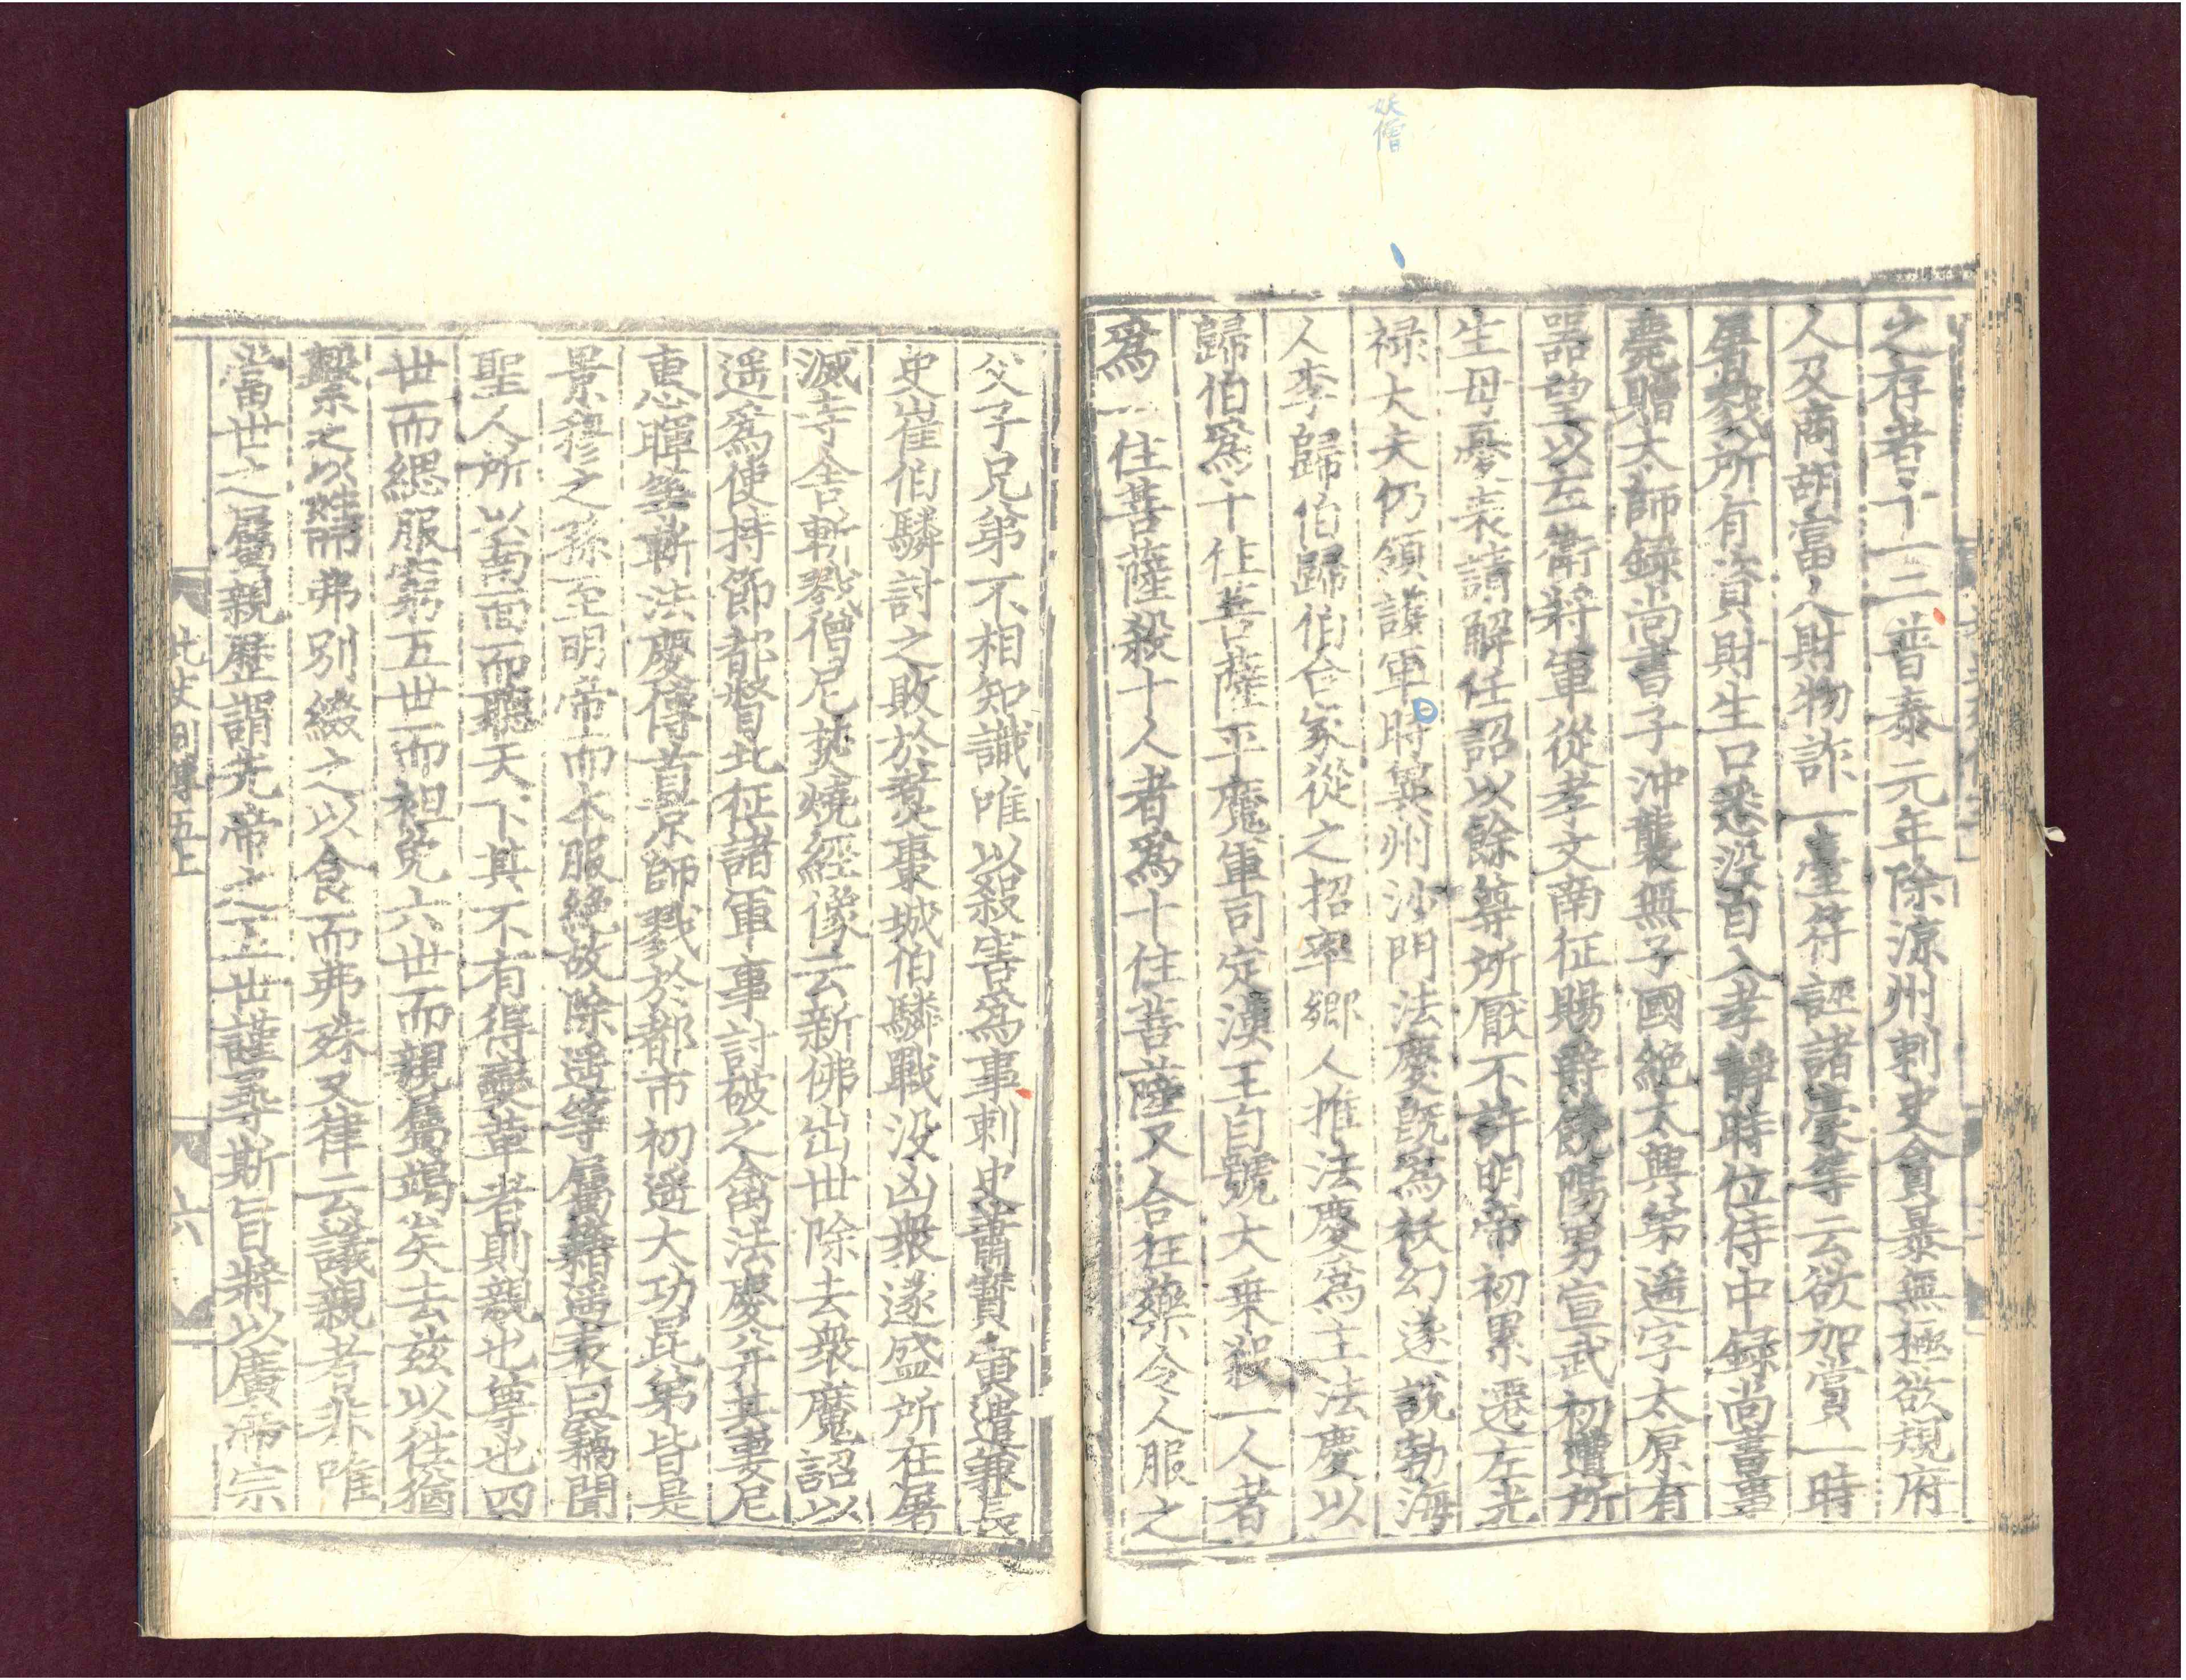 妖僧
之存者十一二普泰元年除涼州刺史貪暴無極欲規府
人及商胡富人財物詐一臺符誣諸豪等云欲加賞一時
屠戮所有資財生口悉没自入孝靜時位侍中録尚書事
薨贈太師録尚書子沖襲無子國絶太興弟遥字太原有
器望以左衛將軍從孝文南征賜爵饒陽男宣武初遭所
生母憂表請解任詔以餘尊所厭不許明帝初累遷左光
禄大夫仍領護軍時冀州沙門法慶既爲妖幻遂説勃海
人李歸伯歸伯合家從之招率郷人推法慶爲主法慶以
歸伯爲十住菩薩平魔軍司定漢王自號大乗殺一人者
爲一住菩薩殺十人者爲十住菩薩又合狂藥令人服之
父子兄弟不相知識唯以殺害爲事刺史蕭寶寅遣兼長
史崔伯驎討之敗於煑棗城伯驎戰没凶衆遂盛所在屠
滅寺舍斬戮僧尼焚燒經像云新佛出世除去衆魔詔以
遥爲使持節都督北征諸軍事討破之禽法慶并其妻尼
惠暉等斬法慶傳首京師戮於都市初遥大功昆弟皆是
景穆之孫至明帝而本服絶故除遥等屬籍遥表曰竊聞
聖人所以南面而聽天下其不有得變革者則親也尊也四
世而緦服窮五世而袒免六世而親屬竭矣去兹以往猶
繫之以姓而弗别綴之以食而弗殊又律云議親者非唯
當世之屬親歷謂先帝之五世謹尋斯旨將以廣帝宗
北史列傳五上
六